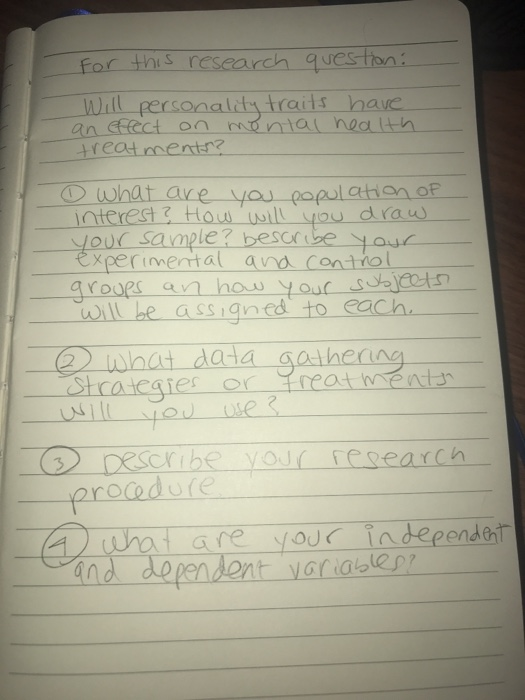 For this research question:
Will personality traits have
an effect on mental health
treatments?
① What are you population of
interest? How will you draw
your sample? Describe your
experimental and control
groups an how your subjects
will be assigned to each.
② What data gathering
strategies or treatments
will you use?
③ Describe your research
procedure
④ what are your independent
and dependent variables?